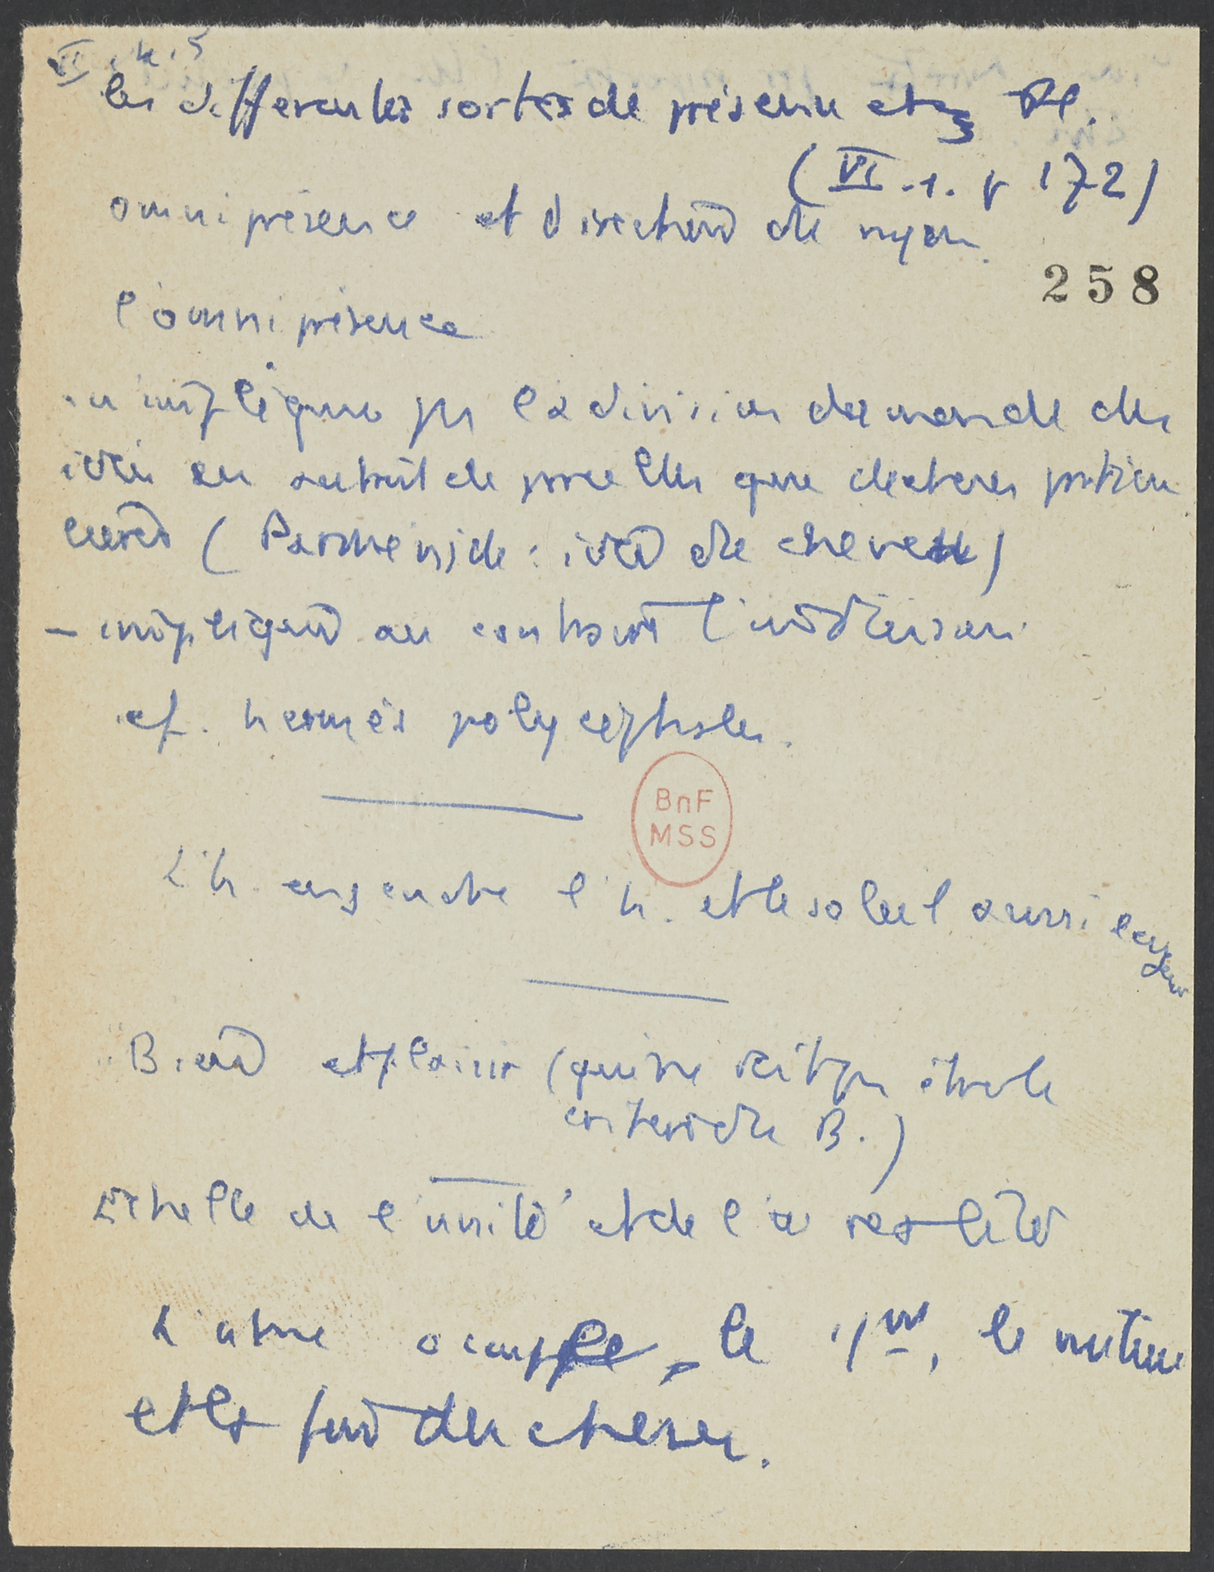 VI. 4. 5
les differentes sortes de présence chez Pl.
(VI. 1. p 172)
omniprésence et direction de rayon.
l'omniprésence
n'implique pas la division du monde des
idées en autant de parcelles que de choses particu
lières (Parmenide : idée de cheveu)
— implique au contraire l'indivision.
cf. hermès polycephales.
BnF
MSS
258
L'h. engendre l'h. et le soleil aussi l'engendre
Bien et plaisir (qui ne doit pas être le
critère du B.)
Echelle de l'unité et de la realité
L'ame occupe le 1er, le milieu
et la fin des choses.